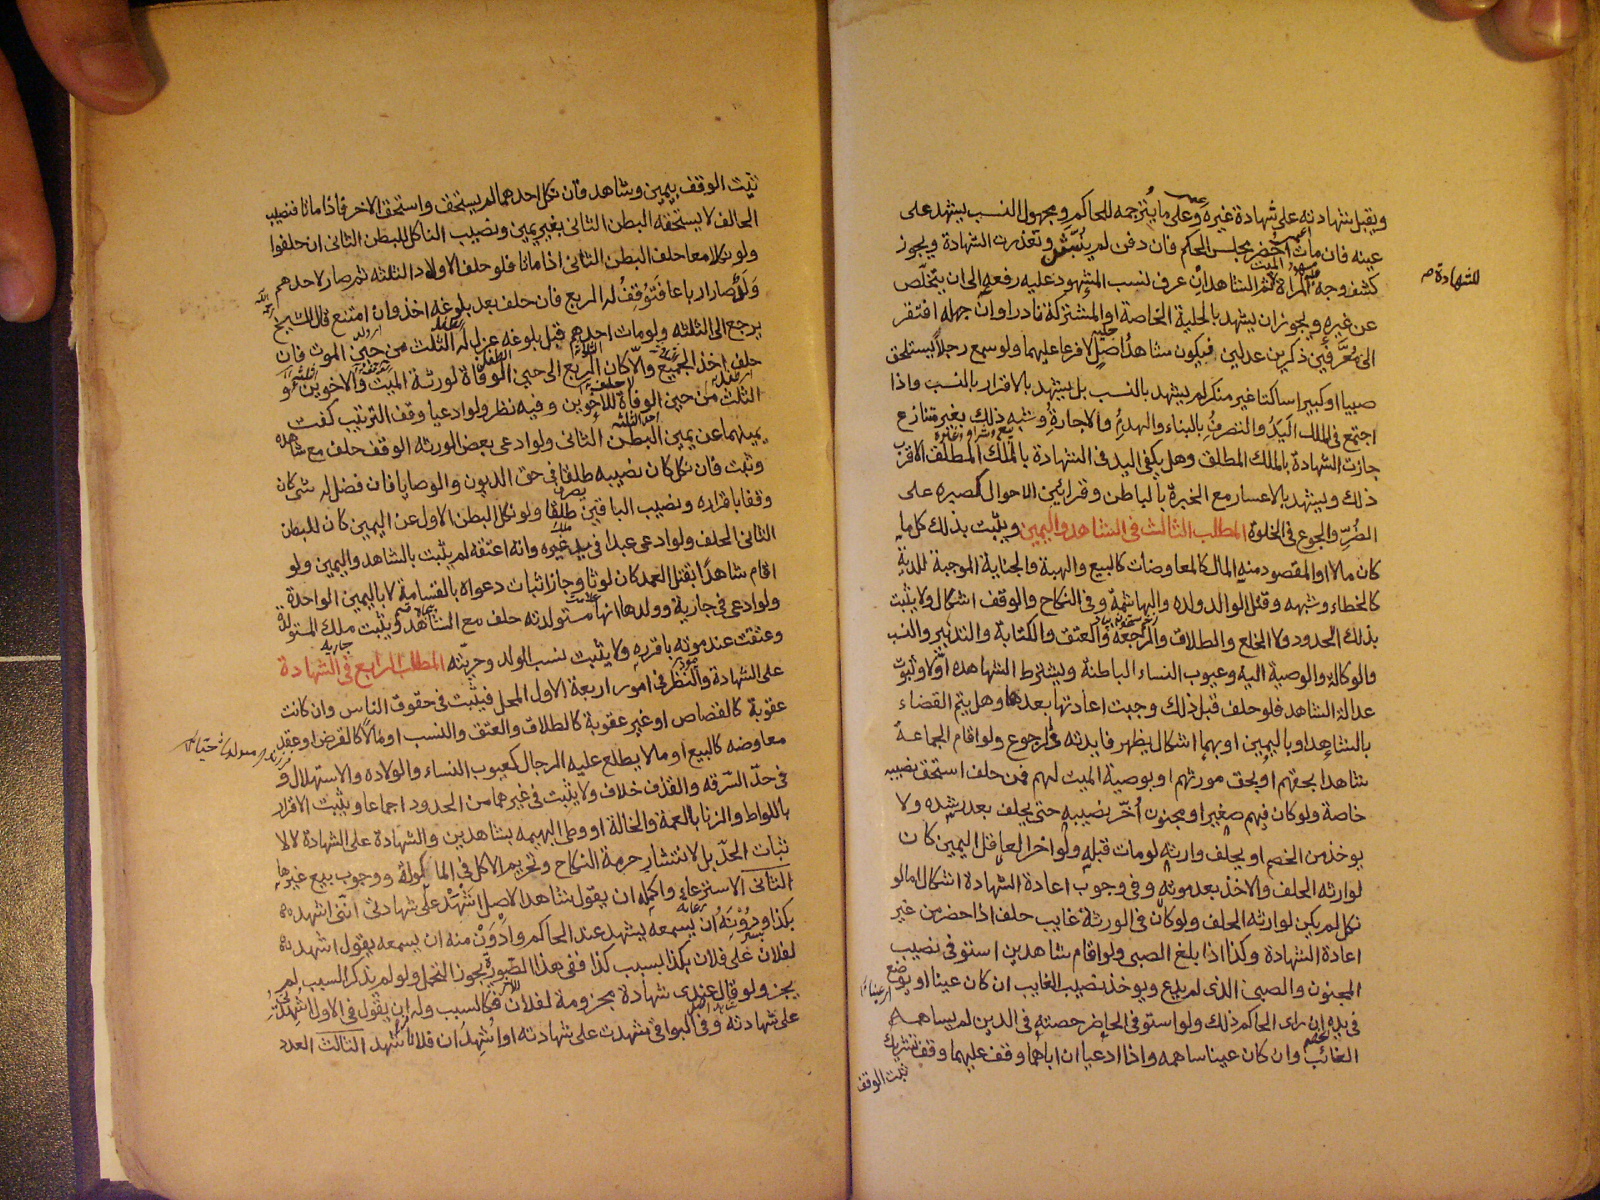 ويقبل شهادته على شهادة غيره وعلى ما يترجمه للحاكم ومجهول النسب يشهد على
عينه فان مات احضر مجلس الحكم فان دفن لم ينبش وتعذرت الشهادة ويجوز
كشف وجه المراة للشهادة
ثم الشاهد ان عرف نسب المشهود عليه رفعه الى ان يتخلص
عن غيره ويجوز ان يشهد بالحلية الخاصة او المشتركة نادرا وان جهله افتقر
الى معرفين ذكرين عدلين فيكون شاهد اصل لا فرعا عليهما ولو سمع رجلا يستلحق
صبيا او كبيرا ساكتا غير منكر لم يشهد بالنسب بل يشهد بالاقرار بالنسب واذا
اجتمع في الملك اليد والتصرف بالبناء والهدم والاجارة وشبه ذلك بغير منازع
جازت الشهادة بالملك المطلق وهل يكفى اليد فى الشهادة بالملك المطلق الاقرب
ذلك ويشهد بالاعسار مع الخبرة بالباطن وقرائن الاحوال كصبره على
الضر والجوع فى الخلوة المطلب الثالث فى الشاهد واليمين ويثبت بذلك كل ما
كان مالا او المقصود منه المال كالمعاوضات كالبيع والهبة والجناية الموجبة للدية
كالخطاء وشبهه وقتل الوالد ولده والهاشمة وفى النكاح والوقف اشكال ولا يثبت
بذلك الحدود ولا الخلع والطلاق والرجعة والعتق والكتابة والتدبير والنسب
والوكالة والوصية اليه وعيوب النساء الباطنة ويشترط الشهادة اولا وثبوت
عدالة الشاهد فلو حلف قبل ذلك وجبت اعادتها بعدها وهل يتم القضاء
بالشاهد او باليمين او بهما اشكال يظهر فايدته فى الرجوع ولو اقام الجماعة
شاهدا بحقهم او بحق مورثهم او بوصية الميت لهم فمن حلف استحق نصيبه
خاصة ولو كان فيهم صغير او مجنون اخر نصيبه حتى يحلف بعد رشده ولا
يوخذ من الخصم او يحلف وارثه لو مات قبله ولو اخر العاقل اليمين كان
لوارثه الحلف والاخذ بعد موته وفى وجوب اعادة الشهادة اشكال اما لو
نكل لم يكن لوارثه الحلف ولو كان فى الورثة غايب حلف اذا حضر من غير
اعادة الشهادة وكذا اذا بلغ الصبى ولو اقام شاهدين استوفى نصيب
المجنون والصبى الذى لم يدع ويوخذ نصيب الغايب ان كان عينا او يوضع
فى يده ان راى الحاكم ذلك ولو استوفى الحاضر حصته فى الدين لم يساهمه
الغائب وان كان عينا ساهمه واذا ادعيا ان اباهما وقف عليهما وقف تشريك
ثبت الوقف
ثبت الوقف بيمين وشاهد فان نكل احدهما لم يستحق واستحق الاخر فاذا ماتا فنصيب
الحالف لا يستحقه البطن الثانى بغير يمين ونصيب الناكل للبطن الثانى ان حلفوا
ولو نكلا معا حلف البطن الثانى اذا ماتا فلو حلف الاولاد الثلثة ثم صار لاحدهم
ولد صار ارباعا فتوقف له الربع فان حلف بعد بلوغه اخذ وان امتنع قال الشيخ
يرجع الى الثلثه ولو مات احدهم قبل بلوغه عزل له الثلث من حين الموت فان
حلف اخذ الجميع والا كان الربع الى حين الوفاة لورثة الميت والاخوين و
الثلث من حين الوفاة للاخوين وفيه نظر ولو ادعيا وقف الترتيب كفت
يمينهما عن يمين البطن الثانى ولو ادعى بعض الورثه الوقف حلف مع شاهده
وثبت فان نكل كان نصيبه طلقا فى حق الديون والوصايا فان فضل له شى كان
وقفا باقراره ونصيب الباقين طلقا ولو نكل البطن الاول عن اليمين كان للبطن
الثانى الحلف ولو ادعى عبدا فى يد غيره وانه اعتقه لم يثبت بالشاهد واليمين ولو
اقام شاهدا بقتل العمد كان لوثا وجاز اثبات دعواه بالقسامة لا باليمين الواحدة
ولو ادعى فى جارية وولدها انها مستولدته حلف مع الشاهد ويثبت ملك المستولدة
وعتقت عند موته باقراره ولا يثبت نسب الولد وحريته المطلب الرابع فى الشهادة
على الشهادة والنظر فى امور اربعة الاول المحل فيثبت فى حقوق الناس وان كانت
عقوبة كالقصاص او غير عقوبة كالطلاق والعتق والنسب او مالا كالقرض او عقد
معاوضه كالبيع او ما لا يطلع عليه الرجال كعيوب النساء والولاده والاستهلال و
فى حد السرقه والقذف خلاف ولا يثبت فى غيرهما من الحدود اجماعا ويثبت الاقرار
باللواط والزنا بالعمة والخالة او وطى البهيمه بشاهدين والشهادة على الشهادة لا لا
ثبات الحد بل لانتشار حرمة النكاح وتحريم الاكل فى الماكولة ووجوب بيع غيرها
الثانى الاسترعاء واكمله ان يقول شاهد الاصل اشهد على شهادتى اننى اشهد
بكذا ودونه ان يسمعه يشهد عند الحاكم وادون منه ان يسمعه يقول اشهد
لفلان على فلان بكذا بسبب كذا ففى هذا الصورة يجوز التحمل ولو لم يذكر السبب لم
يجز ولو قال عندى شهادة مجزومة لفلان فكالسبب وله ان يقول فى الاول اشهدنى
على شهادته وفى البواقى شهدت على شهادته او اشهد ان فلانا شهد الثالث العدد